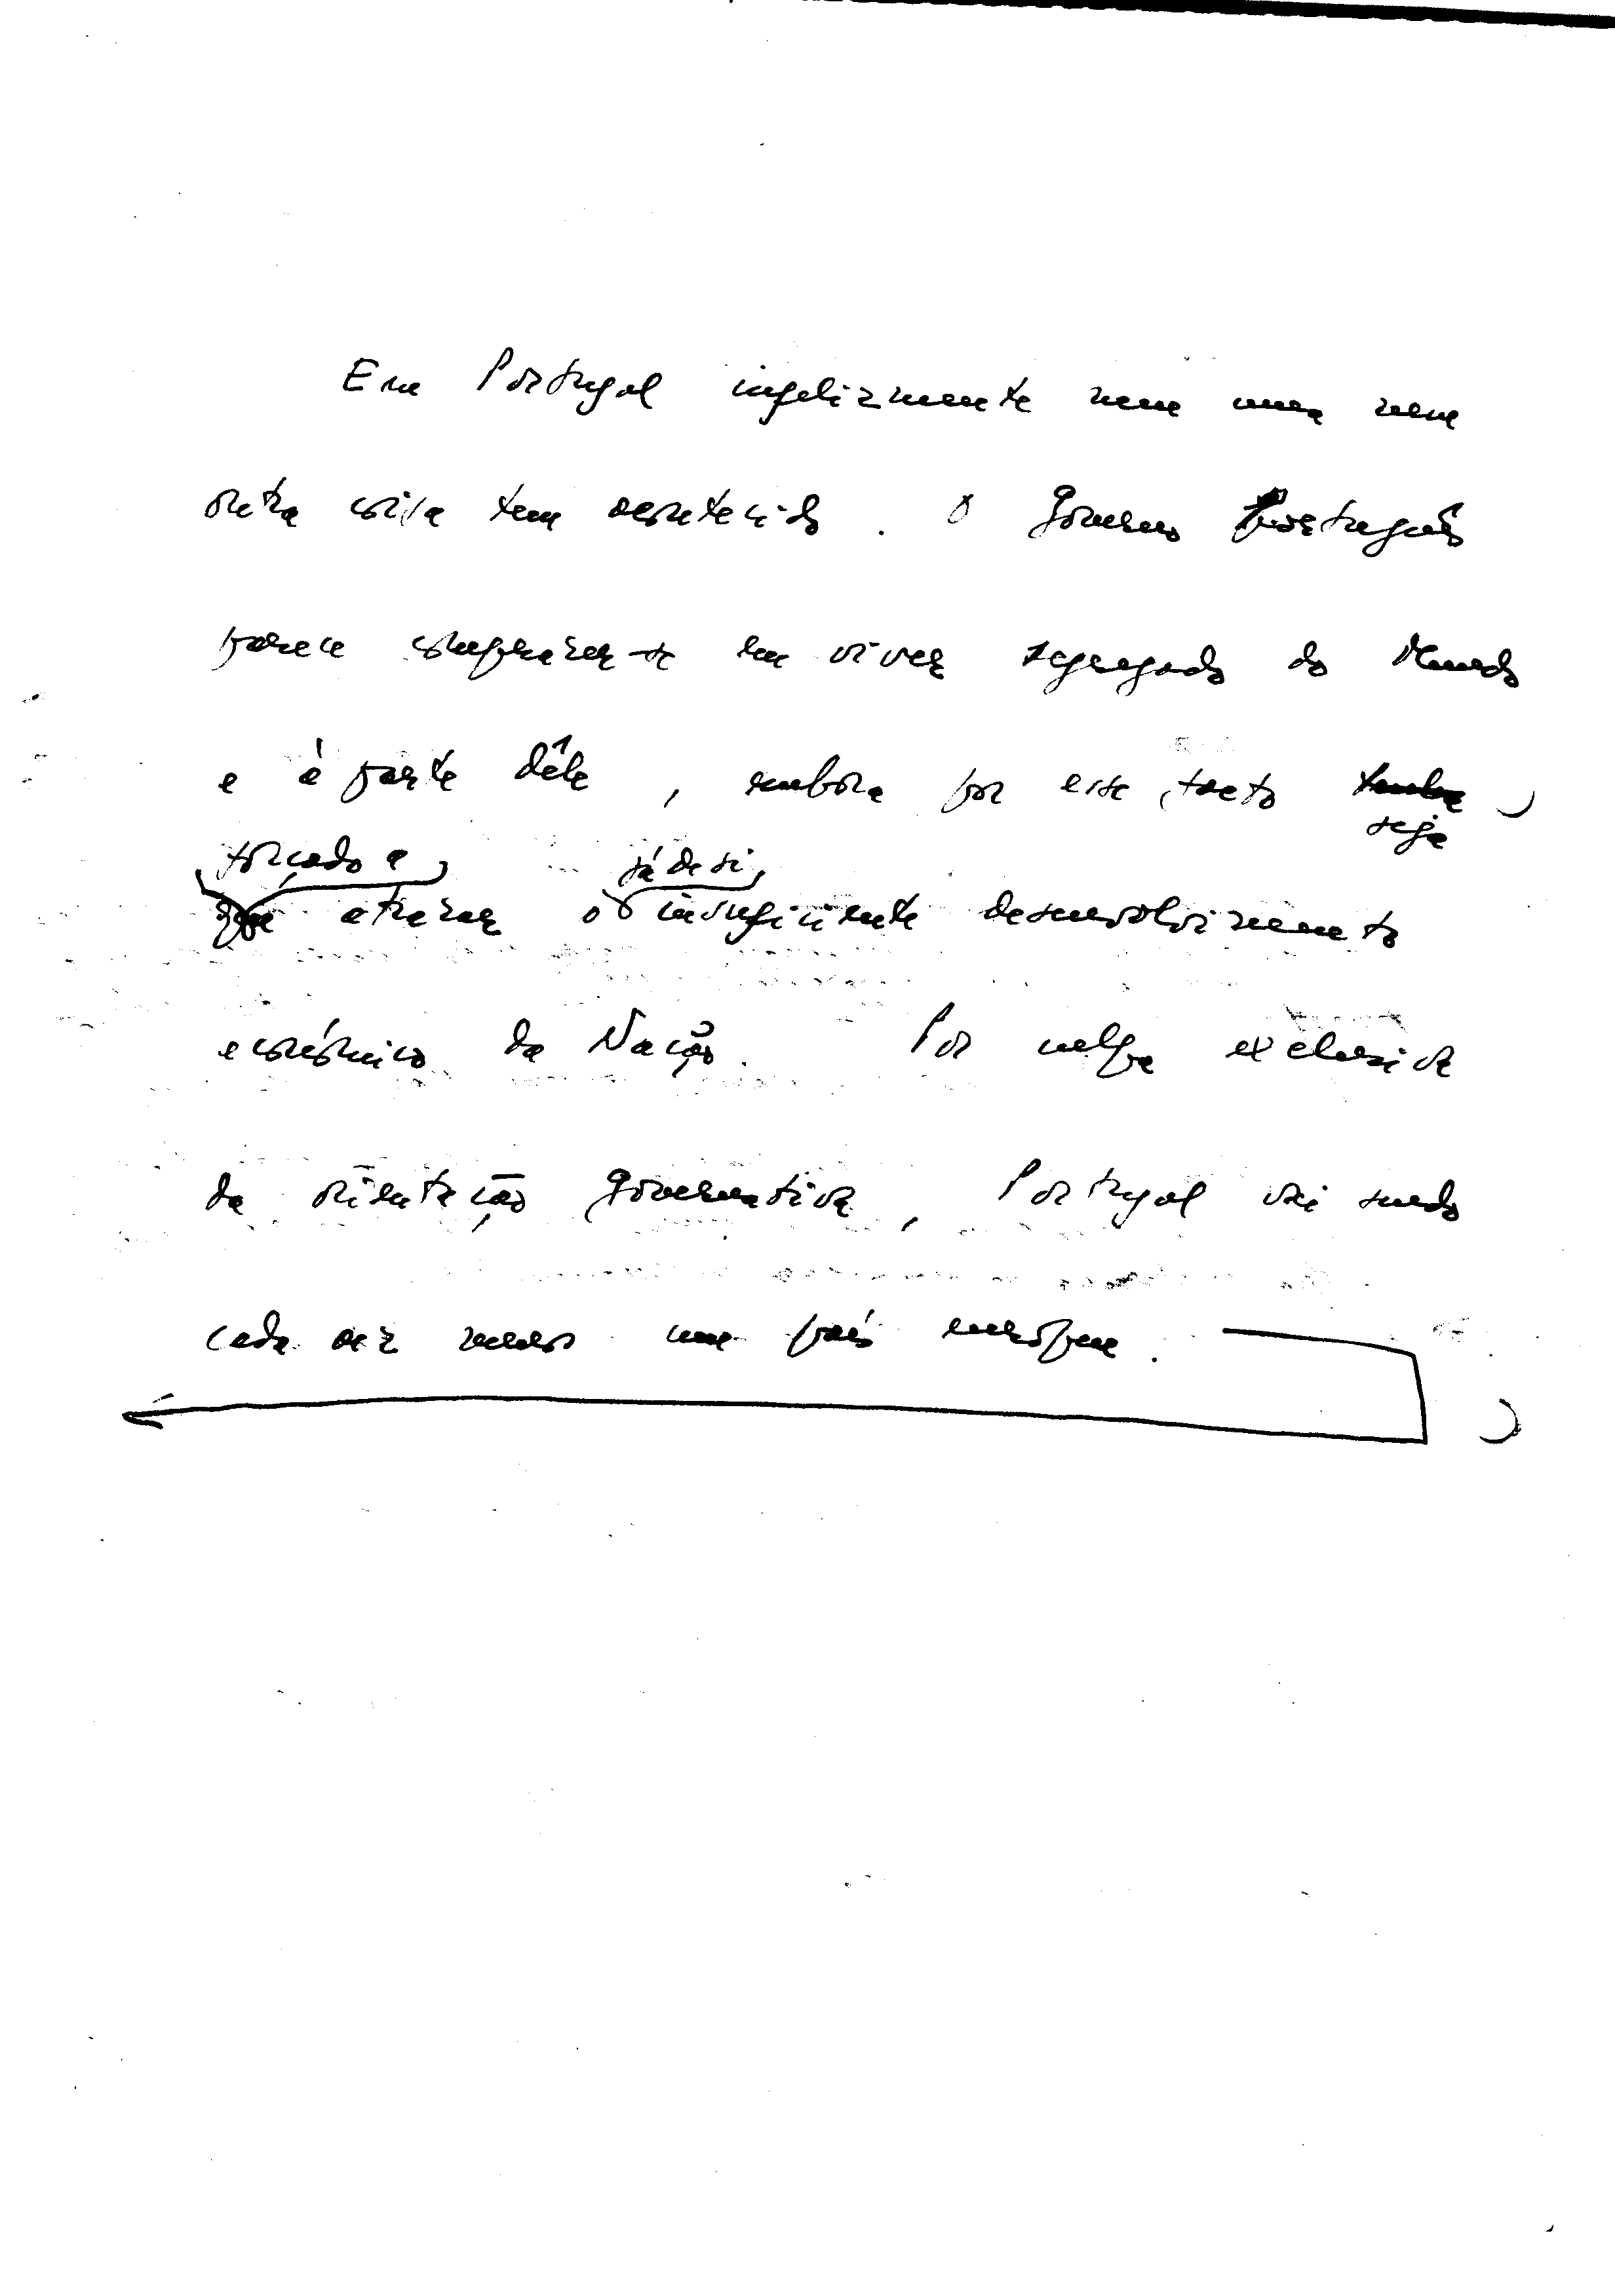 Em Portugal infelizmente nem uma nem
outra coisa tem acontecido. O Governo Português
parece comprazer-se em viver segregado do Mundo
e à parte dêle, embora por esse facto
seja
forçado a já de si,
atrazar o insuficiente desenvolvimento
económico da Nação. Por culpa exclusiva
da orientação governativa, Portugal vai sendo
cada vez menos um país europeu.